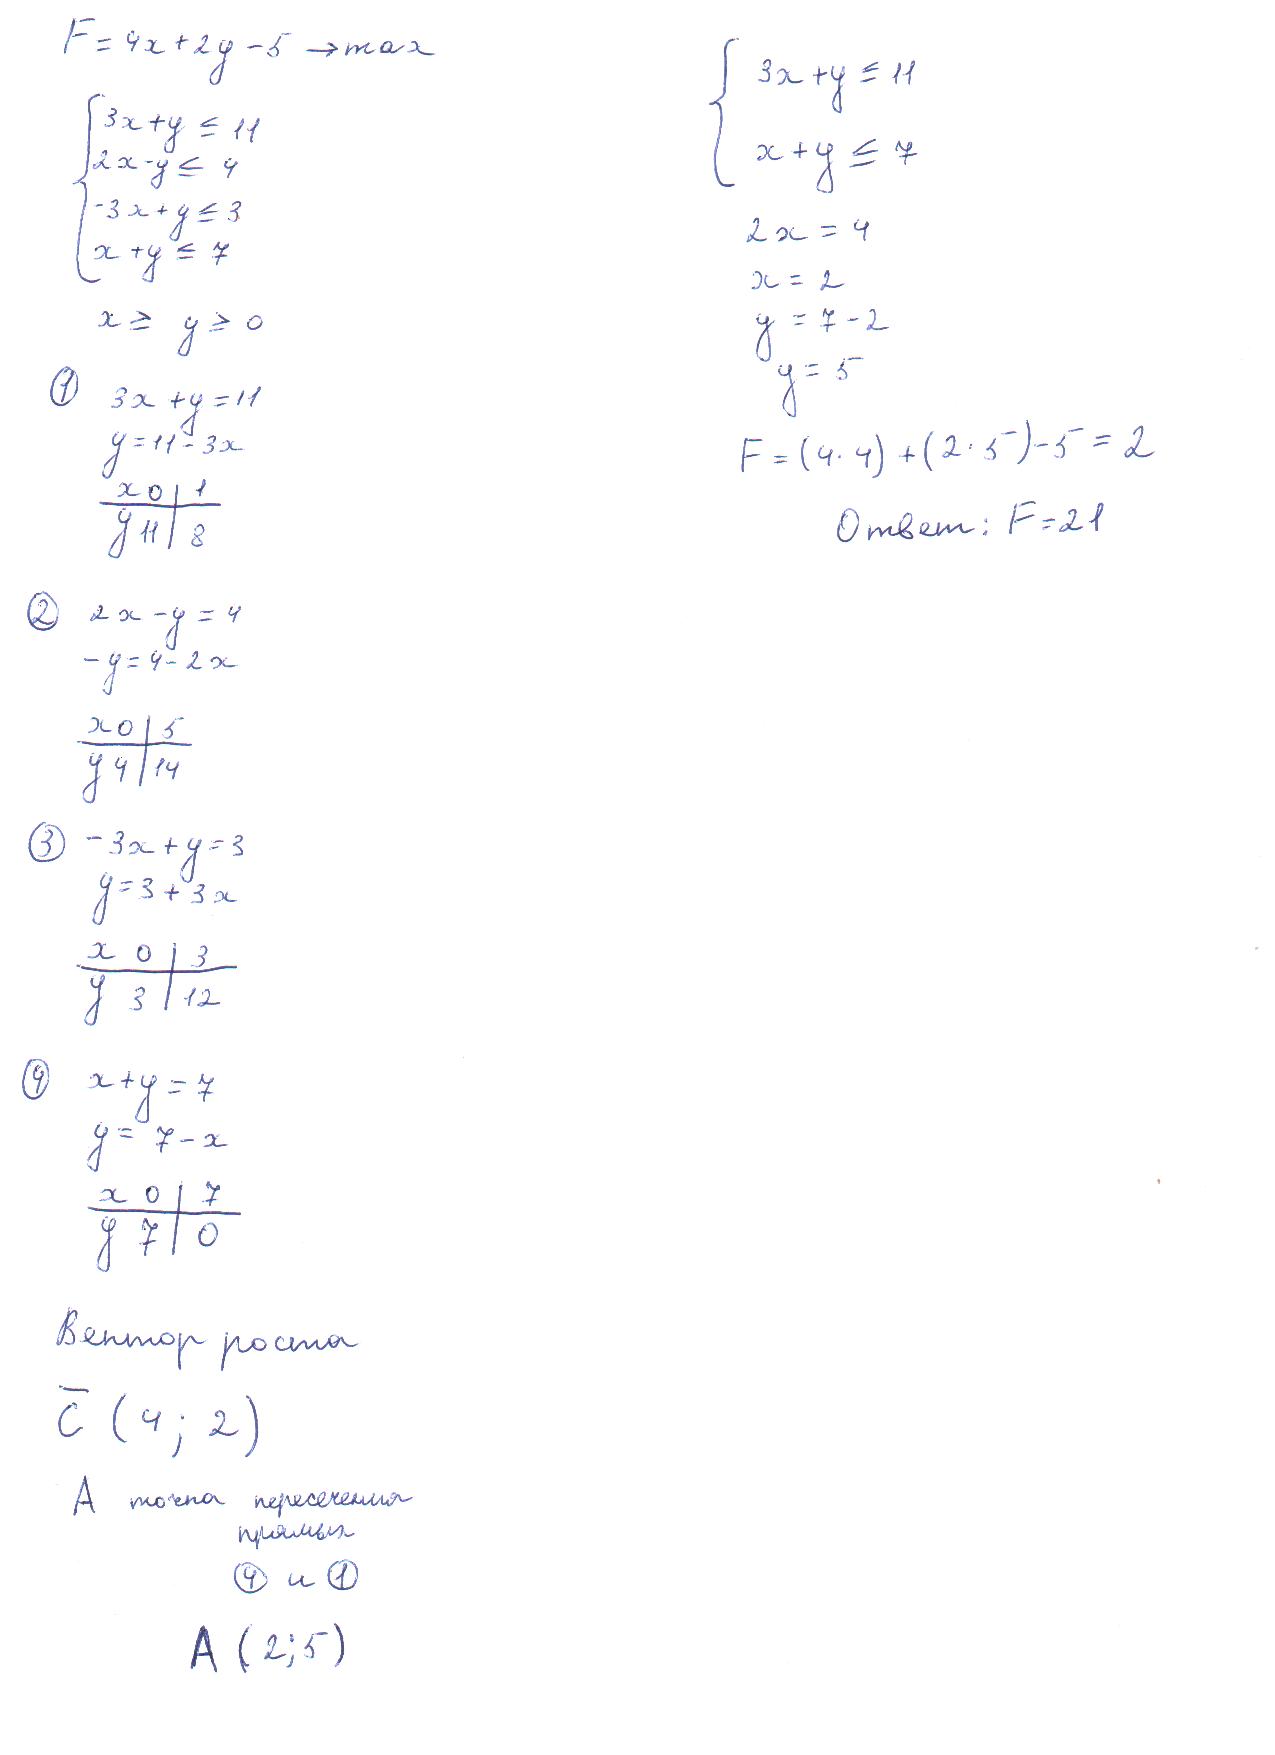 F = 4x + 2y - 5 → max
3x + y ≤ 11
2x - y ≤ 4
-3x + y ≤ 3
x + y ≤ 7
x ≥ y ≥ 0
① 3x + y = 11
y = 11 - 3x
x 0 | 1
y 11 | 8
② 2x - y = 4
-y = 4 - 2x
x 0 | 5
y 4 | 14
③ -3x + y = 3
y = 3 + 3x
x 0 | 3
y 3 | 12
④ x + y = 7
y = 7 - x
x 0 | 7
y 7 | 0
Вектор роста
C̅ (4; 2)
A точка пересечения
прямых
④ и ①
A (2; 5)
3x + y ≤ 11
x + y ≤ 7
2x = 4
x = 2
y = 7 - 2
y = 5
F = (4 · 4) + (2 · 5) - 5 = 2
Ответ: F = 21